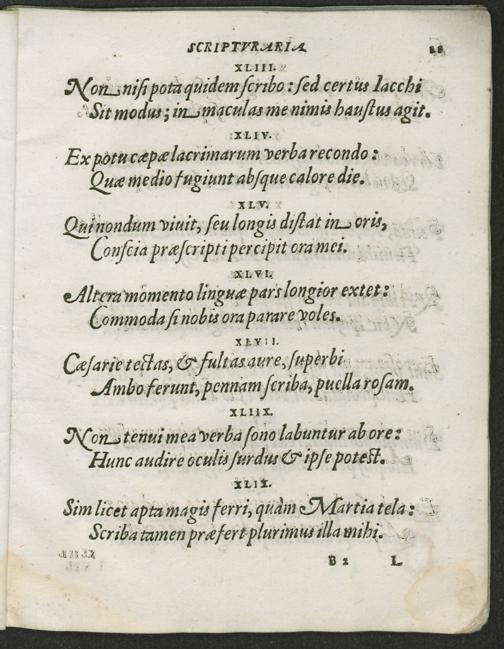 SCRIPTVRARIA
XLIII.
Non nisi pota quidem scribo: sed certus Iacchi
Sit modus; in maculas me nimis haustus agit.
XLIV.
Ex potu cæpæ lacrimarum verba recondo:
Quæ medio fugiunt absque calore die.
XLV.
Qui nondum viuit, seu longis distat in oris,
Conscia præscripti percipit ora mei.
XLVI.
Altera momento linguæ pars longior extet:
Commoda si nobis ora parare voles.
XLVII.
Cæsarie tectas, & fultas aure, superbi
Ambo ferunt, pennam scriba, puella rosam.
XLIIX.
Non tenui mea verba sono labuntur ab ore:
Hunc audire oculis surdus & ipse potest.
XLIX.
Sim licet apta magis ferri, quàm Martia tela:
Scriba tamen præfert plurimus illa mihi.
B 2 L.